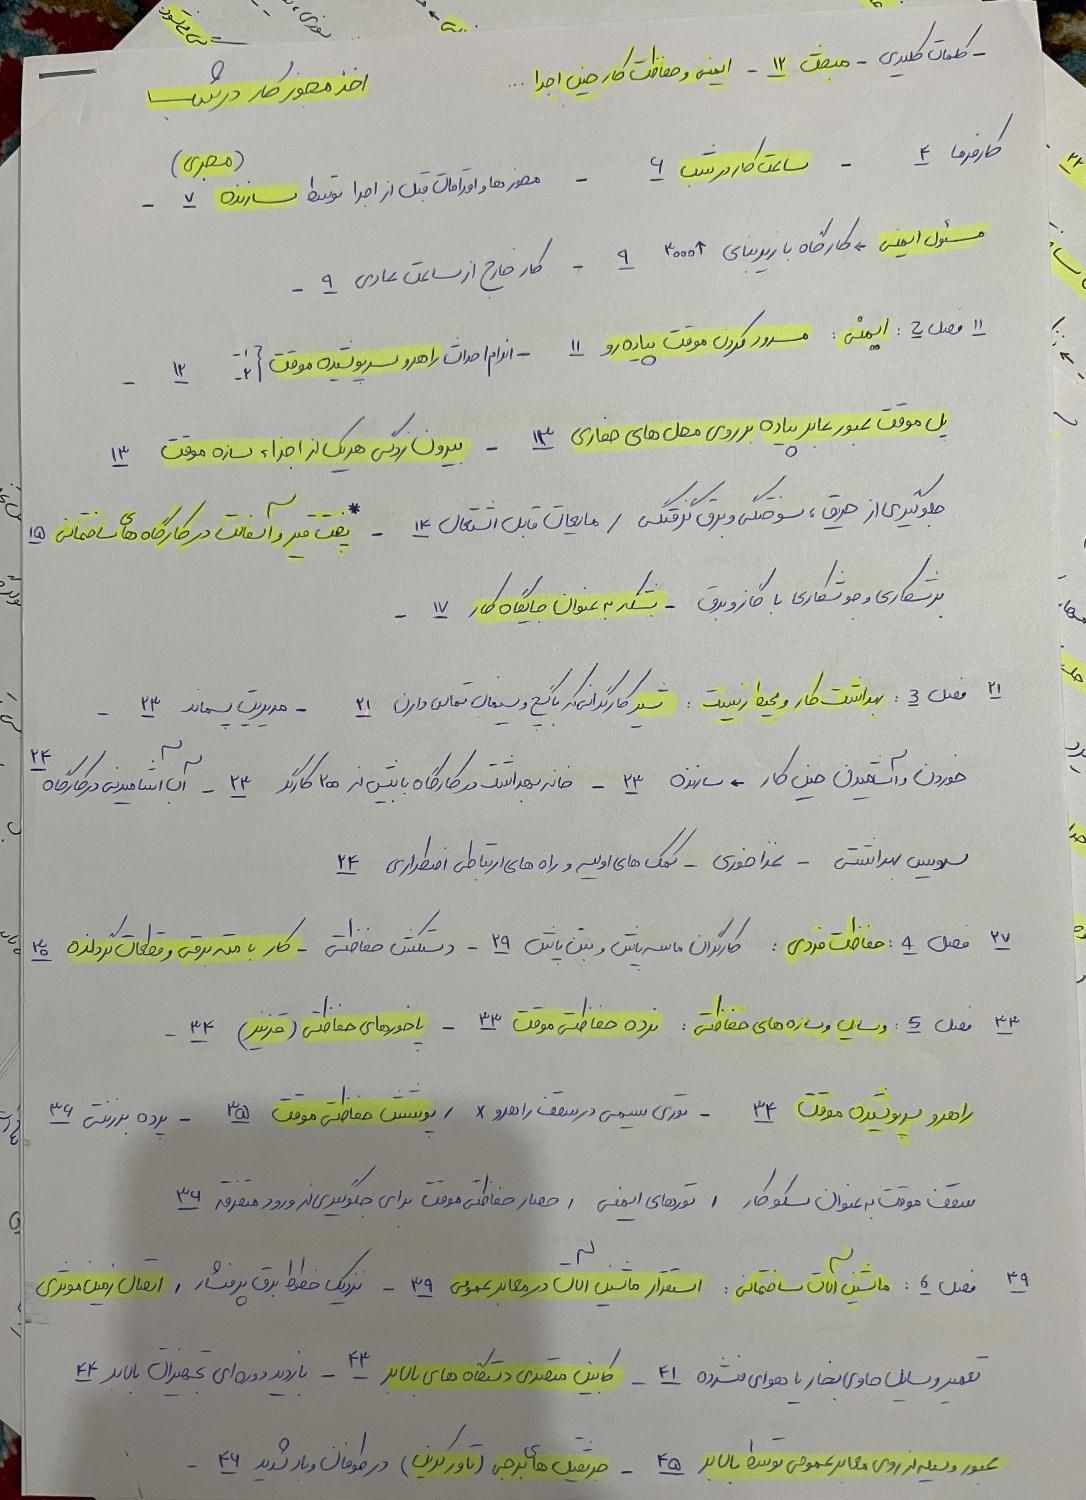 - کلمات کلیدی - مبحث ۱۲ - ایمنی و حفاظت کار حین اجرا ...
اخذ مجوز کار در شب
کارفرما ۴ - ساعت کار در شب ۶ - مجوزها و اقدامات قبل از اجرا توسط سازنده (مجری) ۷ -
مسئول ایمنی ← کارگاه با زیربنای ۳۰۰۰↑ ۹ - کار خارج از ساعت عادی ۹ -
۱۱ فصل 2 : ایمنی : مسدود کردن موقت پیاده‌رو ۱۱ - الزام احداث راهرو سرپوشیده موقت {۱- ۲- ۱۲ -
پل موقت عبور عابر پیاده بر روی محل های حفاری ۱۳ - بیرون زدگی هریک از اجزاء سازه موقت ۱۳
جلوگیری از حریق، سوختگی و برق گرفتگی / مایعات قابل اشتعال ۱۴ - *پخت قیر و آسفالت در کارگاه های ساختمانی ۱۵
برشکاری و جوشکاری با گاز و برق - بشکه به عنوان جایگاه کار ۱۷ -
۲۱ فصل 3 : بهداشت کار و محیط زیست : شیر کارگرانی که با گچ و سیمان تماس دارن ۲۱ - مدیریت پسماند ۲۳ -
خوردن و آشامیدن حین کار ← سازنده ۲۳ - خانه بهداشت در کارگاه با بیش از ۲۵ کارگر ۲۳ - آب آشامیدنی در کارگاه ۲۴
سرویس بهداشتی - غذاخوری - کمک های اولیه و راه های ارتباطی اضطراری ۲۴
۲۷ فصل 4 : حفاظت فردی : کارگران ماسه پاش و بتن پاش ۲۹ - دستکش حفاظتی - کار با مته برقی و قطعات گردنده ۳۰
۳۳ فصل 5 : وسایل و سازه های حفاظتی : نرده حفاظتی موقت ۳۳ - پاخورهای حفاظتی (قرنیز) ۳۴ -
راهرو سرپوشیده موقت ۳۴ - توری سیمی در سقف راهرو x / پوشش حفاظتی موقت ۳۵ - پرده برزنتی ۳۶
سقف موقت به عنوان سکو کار / تورهای ایمنی / حصار حفاظتی موقت برای جلوگیری از ورود متفرقه ۳۶
۳۹ فصل 6 : ماشین آلات ساختمانی : استقرار ماشین آلات در معابر عمومی ۳۹ - نزدیک خطوط برق پرفشار / اتصال زمین موثری
تعمیر وسایل حاوی بخار یا هوای فشرده ۴۱ - کابین متصدی دستگاه های بالابر ۴۳ - بازدید دوره ای تجهیزات بالابر ۴۴
عبور وسیله از روی معابر عمومی توسط بالابر ۴۵ - جرثقیل های برجی (تاورکرین) در طوفان و باد شدید ۴۶ -